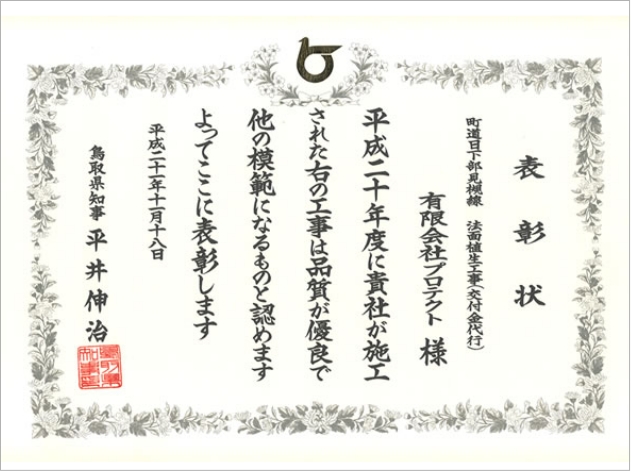 表彰状
町道日下部見槻線 法面植生工事(交付金代行)
有限会社プロテクト 様
平成二十年度に貴社が施工
された右の工事は品質が優良で
他の模範になるものと認めます
よってここに表彰します
平成二十一年十一月十八日
鳥取県知事 平井伸治